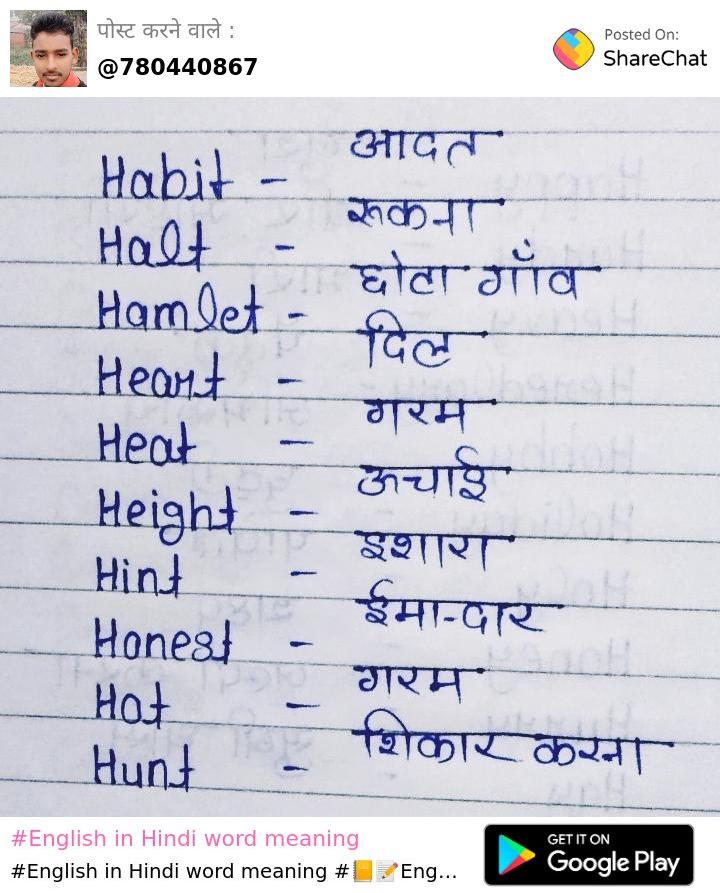 पोस्ट करने वाले :
@780440867
Posted On:
ShareChat
Habit - आदत
Halt - रूकना
Hamlet - छोटा गाँव
Heart - दिल
Heat - गरम
Height - ऊचाई
Hint - इशारा
Honest - ईमान्दार
Hot - गरम
Hunt - शिकार करना
#English in Hindi word meaning
#English in Hindi word meaning #📒📝Eng...
GET IT ON
Google Play